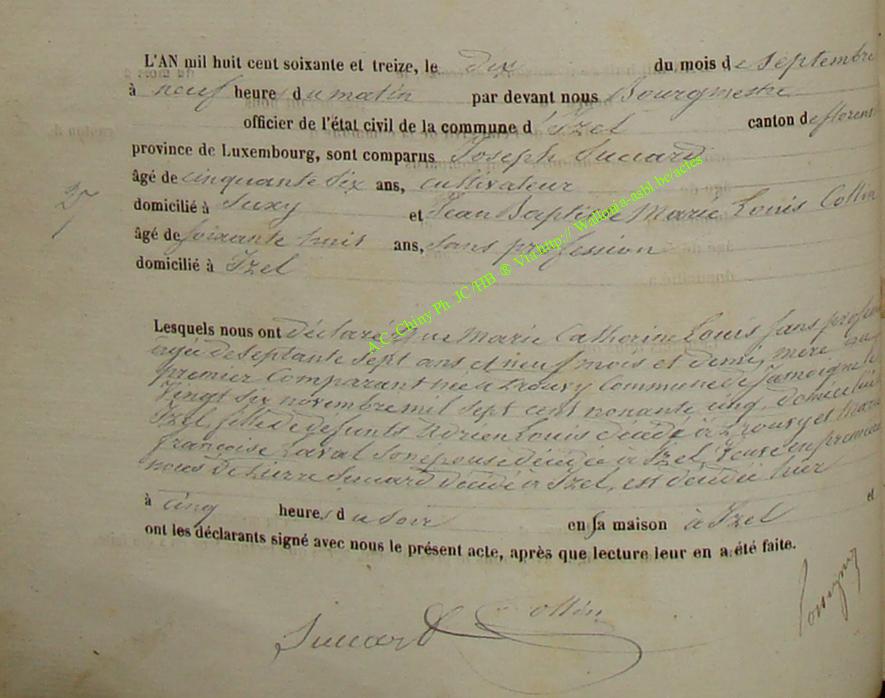 L'AN mil huit cent soixante et treize, le dix du mois de septembre
à neuf heure du matin par devant nous Bourgmestre
officier de l'état civil de la commune d'Izel canton de florenv
province de Luxembourg, sont comparus Joseph Suuard
âgé de cinquante six ans, cultivateur
27
domicilié à Suxy et Jean Baptiste Marie Louis Collin
âgé de soixante huit ans, sans profession
domicilié à Izel
A.C. Chiny Ph. JC/HB ® Via http://Wallonia-asbl.be/actes
Lesquels nous ont déclaré que Marie Catherine Louis sans profession
agée de septante sept ans et neuf mois et demi, mère au
premier comparant née a Prouvy Commune de Jamoigne le
Vingt six novembre mil sept cent nonante cinq, domiciliée
Izel, fille de defunts Adrien Louis décédé à Prouvy et Marie
françoise Laval son epouse décédée à Izel, Veuve en premières
noces de Pierre Suuard décédé à Izel, est décédée hier
à cinq heures du soir en sa maison à Izel et
ont les déclarants signé avec nous le présent acte, après que lecture leur en a été faite.
Collin
Suuard